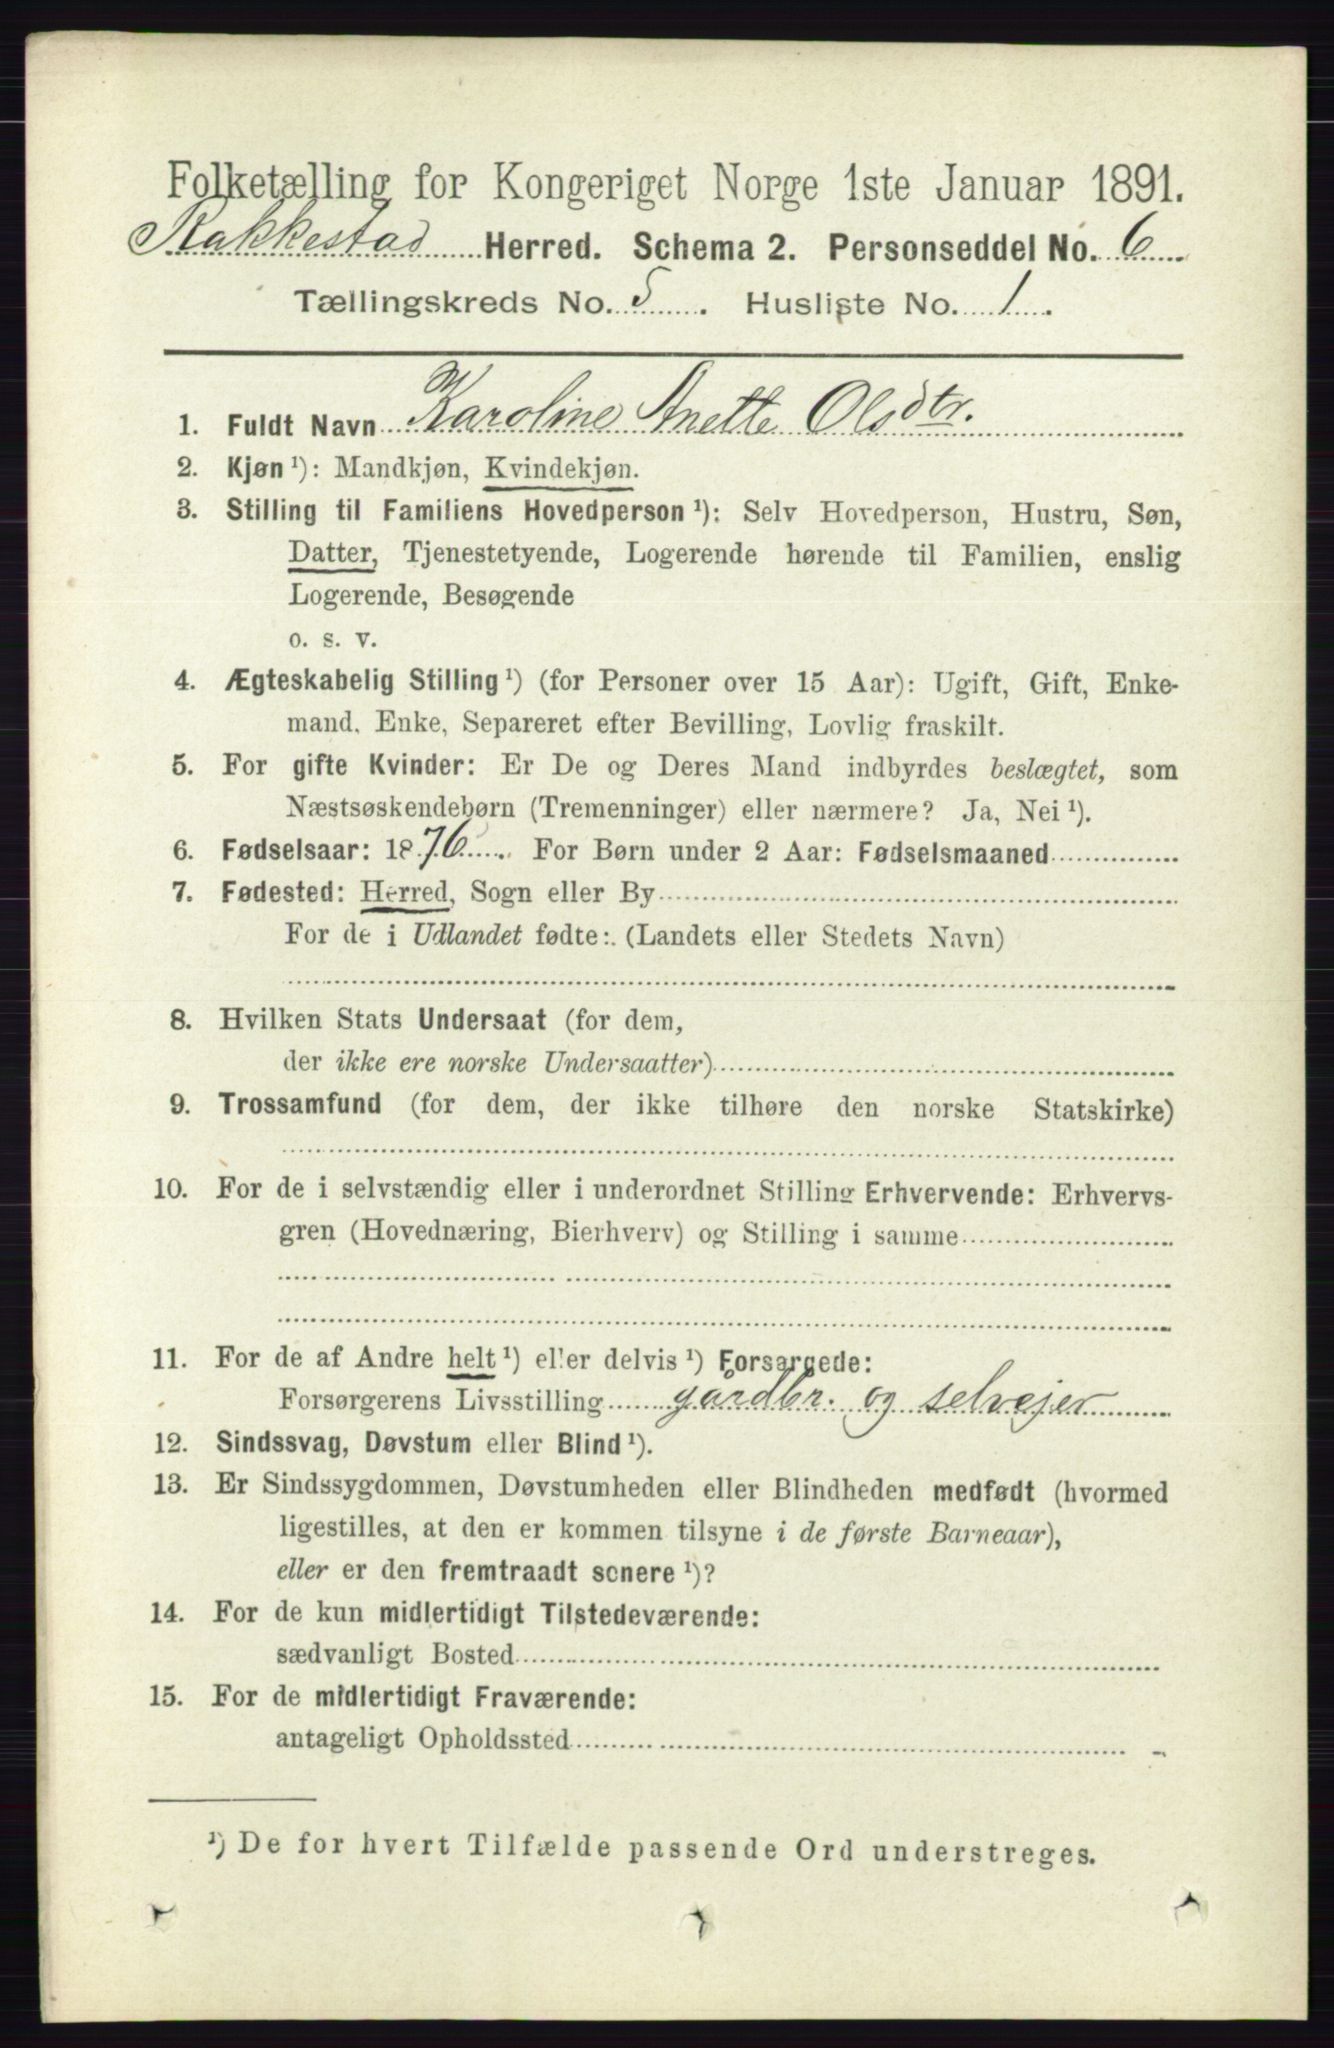 Folketælling for Kongeriget Norge 1ste Januar 1891.
Rakkestad Herred. Schema 2. Personseddel No. 6
Tællingskreds No. 5. Husliste No. 1.
1. Fuldt Navn Karoline Anette Olsdtr.
2. Kjøn ¹): Mandkjøn, Kvindekjøn.
3. Stilling til Familiens Hovedperson ¹): Selv Hovedperson, Hustru, Søn,
Datter, Tjenestetyende, Logerende hørende til Familien, enslig
Logerende, Besøgende
o. s. v.
4. Ægteskabelig Stilling ¹) (for Personer over 15 Aar): Ugift, Gift, Enke-
mand, Enke, Separeret efter Bevilling, Lovlig fraskilt.
5. For gifte Kvinder: Er De og Deres Mand indbyrdes beslægtet, som
Næstsøskendebørn (Tremenninger) eller nærmere? Ja, Nei ¹).
6. Fødselsaar: 1876. For Børn under 2 Aar: Fødselsmaaned
7. Fødested: Herred, Sogn eller By
For de i Udlandet fødte: (Landets eller Stedets Navn)
8. Hvilken Stats Undersaat (for dem,
der ikke ere norske Undersaatter)
9. Trossamfund (for dem, der ikke tilhøre den norske Statskirke)
10. For de i selvstændig eller i underordnet Stilling Erhvervende: Erhvervs-
gren (Hovednæring, Bierhverv) og Stilling i samme
11. For de af Andre helt ¹) eller delvis ¹) Forsørgede:
Forsørgerens Livsstilling gårdbr. og selvejer
12. Sindssvag, Døvstum eller Blind ¹).
13. Er Sindssygdommen, Døvstumheden eller Blindheden medfødt (hvormed
ligestilles, at den er kommen tilsyne i de første Barneaar),
eller er den fremtraadt senere ¹)?
14. For de kun midlertidigt Tilstedeværende:
sædvanligt Bosted
15. For de midlertidigt Fraværende:
antageligt Opholdssted
¹) De for hvert Tilfælde passende Ord understreges.